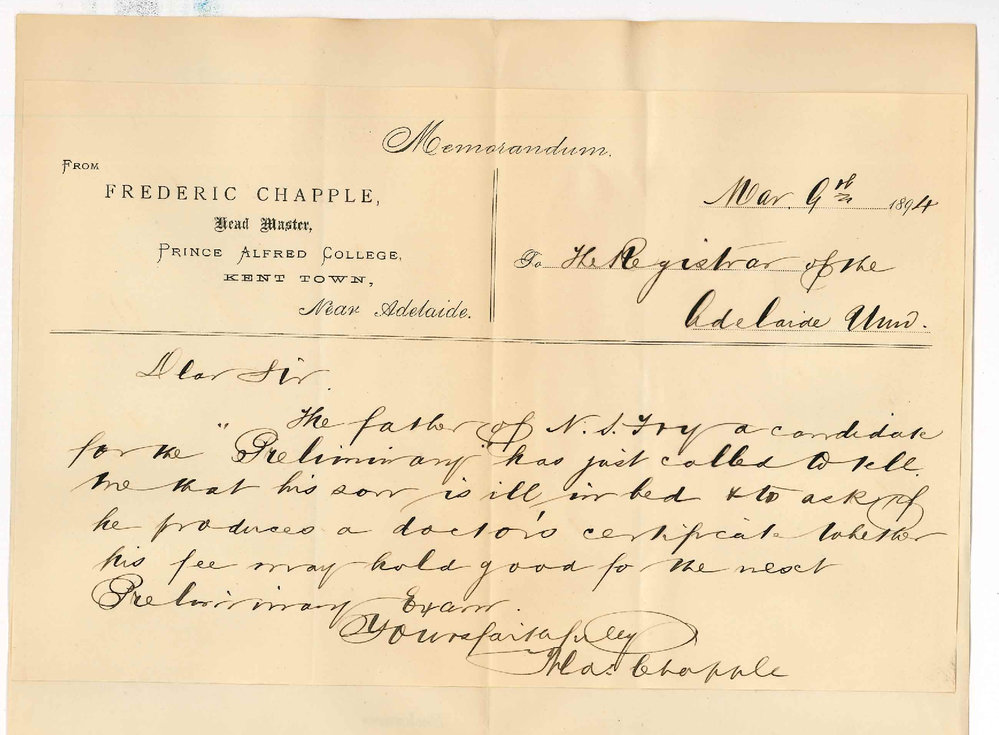 Memorandum.
FROM
FREDERIC CHAPPLE,
Head Master,
PRINCE ALFRED COLLEGE,
KENT TOWN,
Near Adelaide.
Mar. 9th 1894
To The Registrar of the
Adelaide Univ.
Dear Sir
The father of N. S. Fry a candidate
for the "Preliminary" has just called to tell
me that his son is ill in bed & to ask if
he produces a doctor's certificate whether
his fee may hold good for the next
Preliminary Exam.
Yours faithfully
Chapple